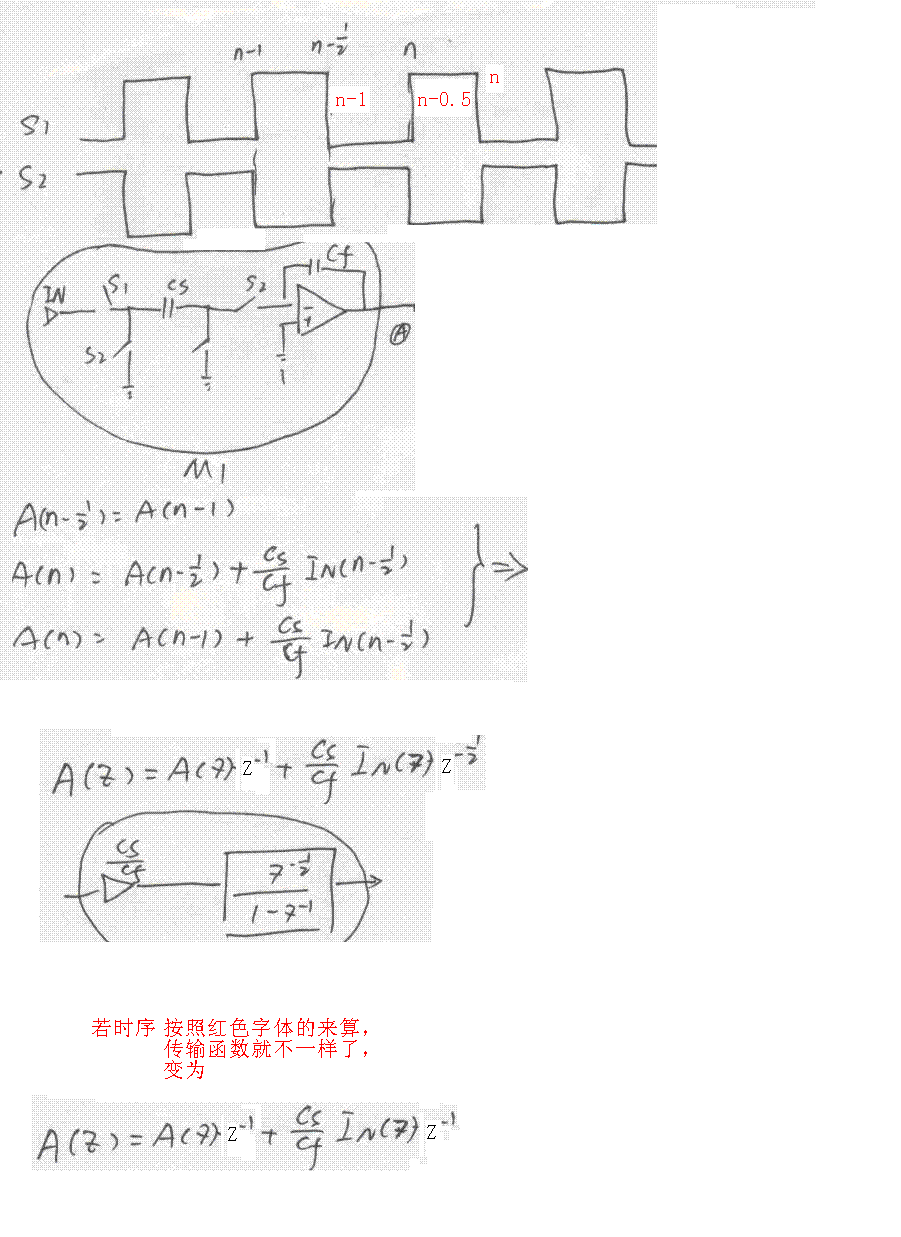 n-1 n-1/2 n
n
n-1 n-0.5
S1
S2
IN S1 Cs S2 Cf
S2
A
M1
A(n-1/2) = A(n-1)
A(n) = A(n-1/2) + Cs/Cf IN(n-1/2)
A(n) = A(n-1) + Cs/Cf IN(n-1/2)
} ⇒
A(z) = A(z) z^-1 + Cs/Cf IN(z) z^-1/2
Cs/Cf
z^-1/2
1 - z^-1
若时序 按照红色字体的来算,
传输函数就不一样了,
变为
A(z) = A(z) z^-1 + Cs/Cf IN(z) z^-1